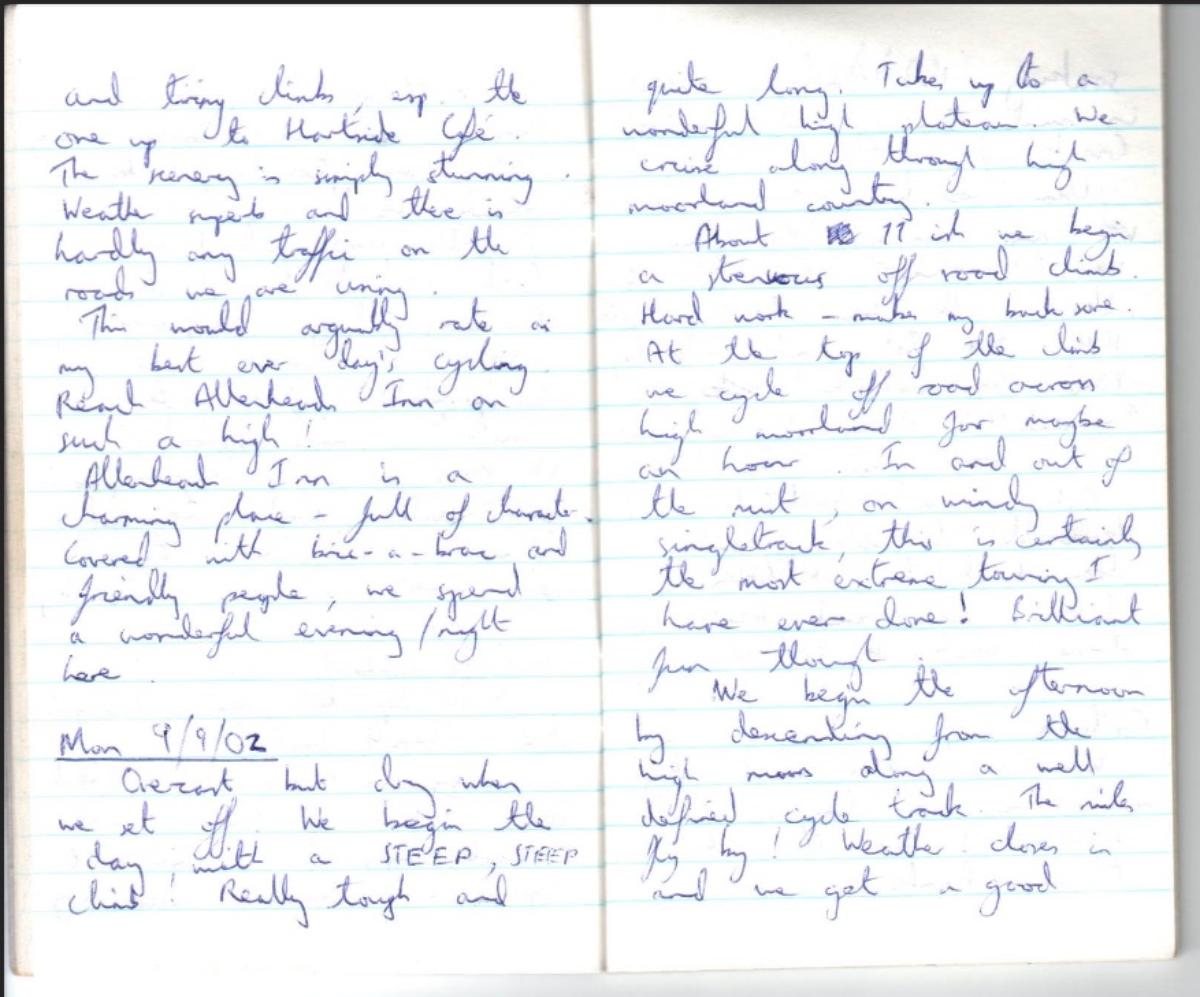 and tiring climbs, esp. the
one up to Hartside Café.
The scenery is simply stunning.
Weather superb and there is
hardly any traffic on the
roads we are using.
This would arguably rate as
my best ever day's cycling.
Reach Allenheads Inn on
such a high!
Allenheads Inn is a
charming place - full of character.
Covered with bric-a-brac and
friendly people, we spend
a wonderful evening/night
here.
Mon 9/9/02
Overcast but dry when
we set off. We begin the
day with a STEEP, STEEP
climb! Really tough and
quite long. Takes up to a
wonderful high plateau. We
cruise along through high
moorland country.
About 11 ish we begin
a strenuous off road climb.
Hard work - makes my back sore.
At the top of the climb
we cycle off road across
high moorland for maybe
an hour. In and out of
the mist, on windy
singletrack, this is certainly
the most extreme touring I
have ever done! Brilliant
fun though.
We begin the afternoon
by descending from the
high moors along a well
defined cycle track. The miles
fly by! Weather closes in
and we get a good